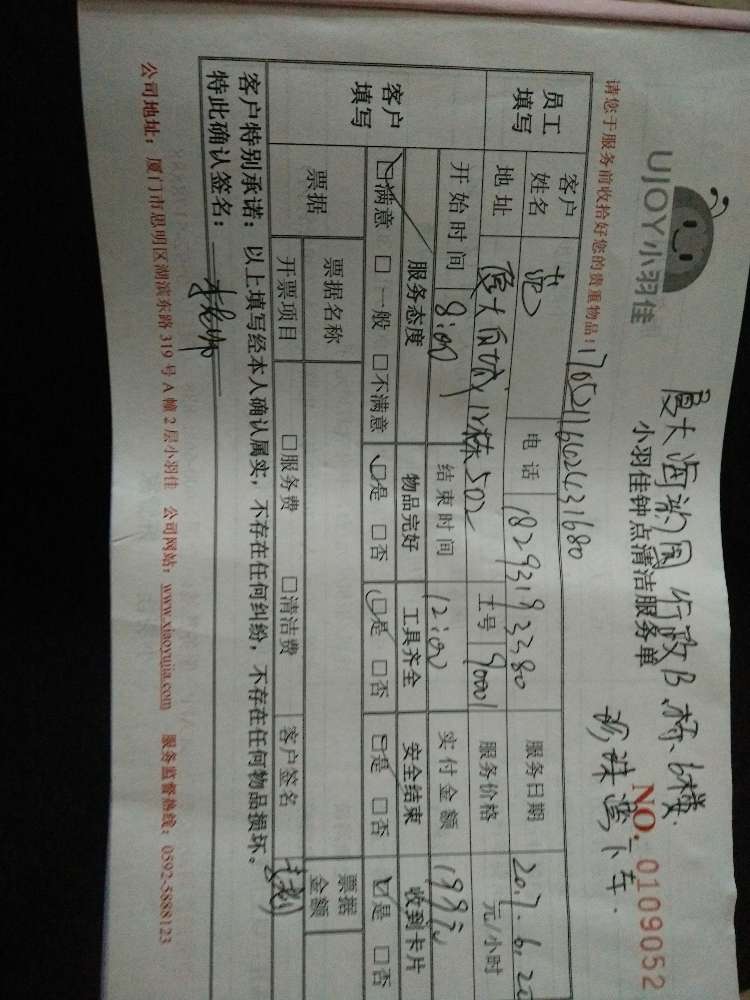 厦大海韵园行政B栋6楼
珍珠湾下车.
UJOY小羽佳
小羽佳钟点清洁服务单
NO. 0109052
请您于服务前收拾好您的贵重物品: 17052116602431680
员工填写 客户姓名 电话 18293193380 服务日期 2017.6.20
地址 厦大白城12栋502 工号 90001 服务价格 元/小时
客户填写 开始时间 8:00 结束时间 12:00 实付金额 199元
服务态度 物品完好 工具齐全 安全结束 收到卡片
☑满意 □一般 □不满意 ☑是 □否 ☑是 □否 ☑是 □否 ☑是 □否
票据 票据名称 票据金额
开票项目 □服务费 □清洁费 客户签名
客户特别承诺：以上填写经本人确认属实，不存在任何纠纷，不存在任何物品损坏。
特此确认签名：
公司地址：厦门市思明区湖滨东路 319 号 A 幢 2 层小羽佳 公司网站：www.xiaoyujia.com 服务监督热线：0592-5888123